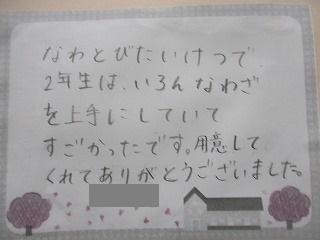 なわとびたいけつで
2年生は、いろんなわざ
を上手にしていて
すごかったです。用意して
くれてありがとうございました。